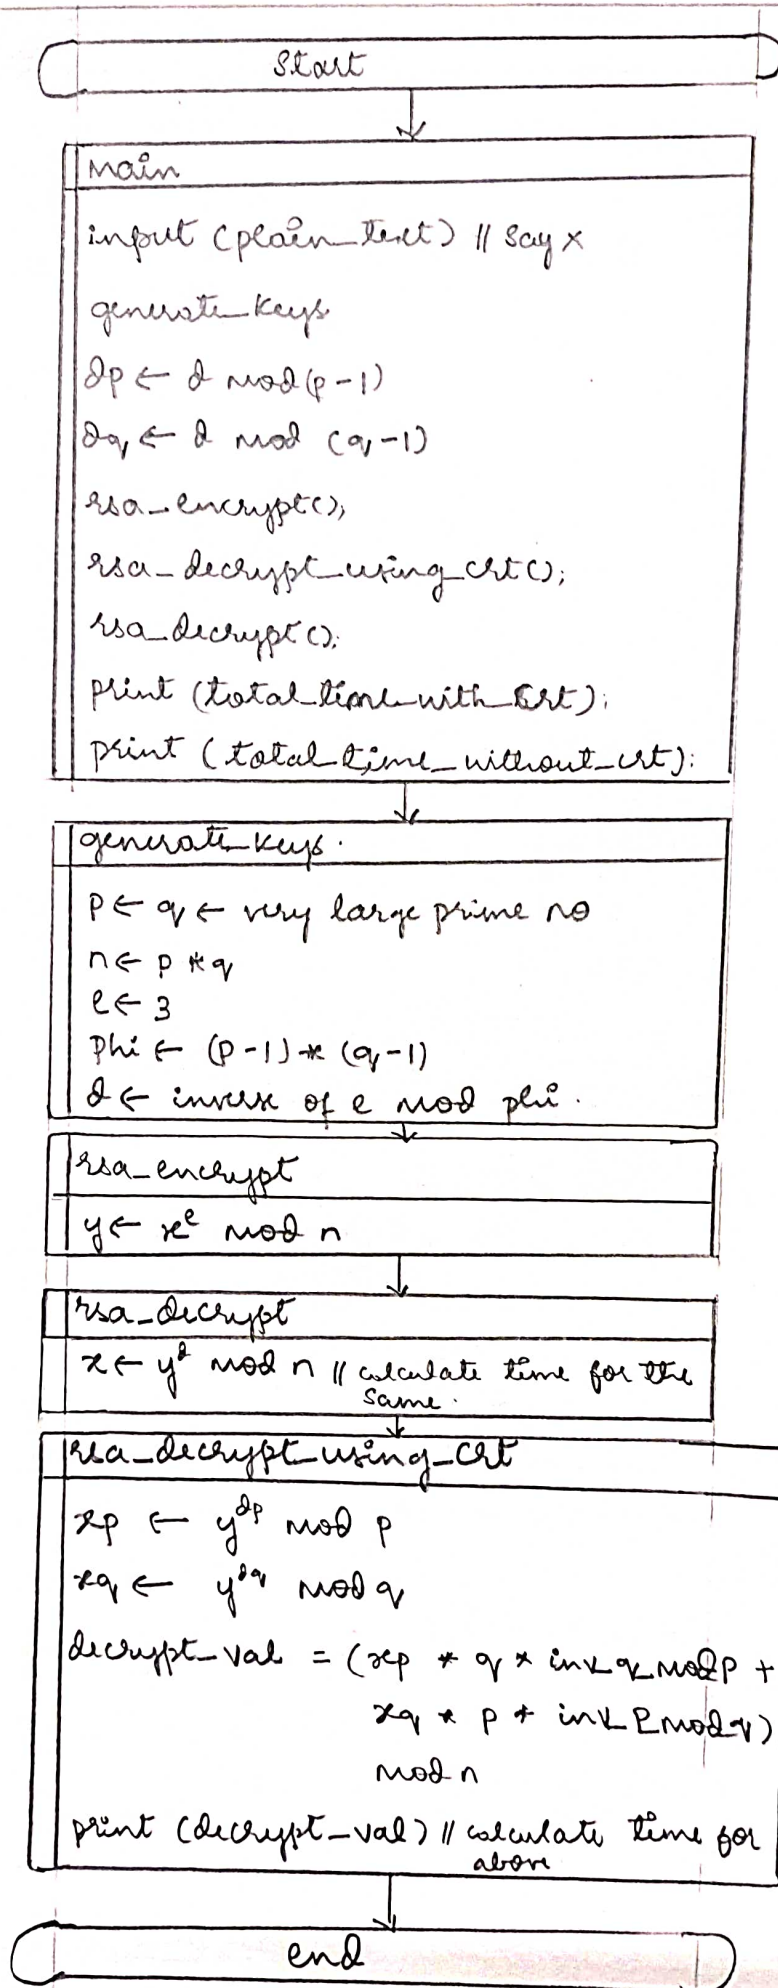 Start
main
input (plain_text) // say x
generate_keys
dp ← d mod (p-1)
dq ← d mod (q-1)
rsa_encrypt();
rsa_decrypt_using_crt();
rsa_decrypt();
print (total_time_with_crt);
print (total_time_without_crt);
generate_keys.
p ← q ← very large prime no
n ← p * q
e ← 3
phi ← (p-1) * (q-1)
d ← inverse of e mod phi.
rsa_encrypt
y ← x^e mod n
rsa_decrypt
x ← y^d mod n // calculate time for the
same.
rsa_decrypt_using_crt
xp ← y^dp mod p
xq ← y^dq mod q
decrypt_val = (xp * q * inv_q_mod p +
xq * p * inv_p mod q)
mod n
print (decrypt_val) // calculate time for
above
end